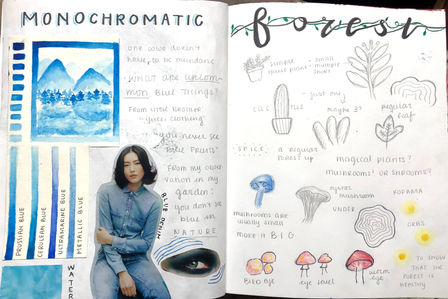 MONOCHROMATIC
one color doesn't
have to be mundane
WHAT ARE UNCOM-
MON BLUE THINGS?
From little brother
"juice, clothing"
you never see
blue fruits!
From my older
garden:
you don't see
blue in
NATURE
BLUE DENIM
PRUSSIAN BLUE
CERULEAN BLUE
ULTRAMARINE BLUE
METALLIC BLUE
WATER
forest
simple
small
multiple
just my
maybe?
regular
leaf
SPICE
a regular
forest up
magical plants?
mushrooms? or shrooms?
mushroom
KODAMA
UNDER
mushrooms are
usually small
make it BIG
ORBS
TO SHOW
THAT THE
FOREST IS
HEALTHY
BIRD EYE
eye level
worm
eye